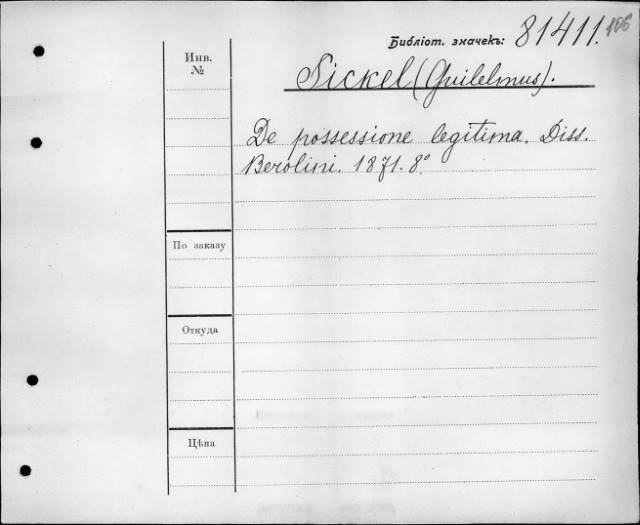 Библіот. значекъ: 81411. 106
Инв.
№
Nickel (Guilelmus).
De possessione legitima. Diss.
Berolini. 1871. 8°.
По заказу
Откуда
Цѣна